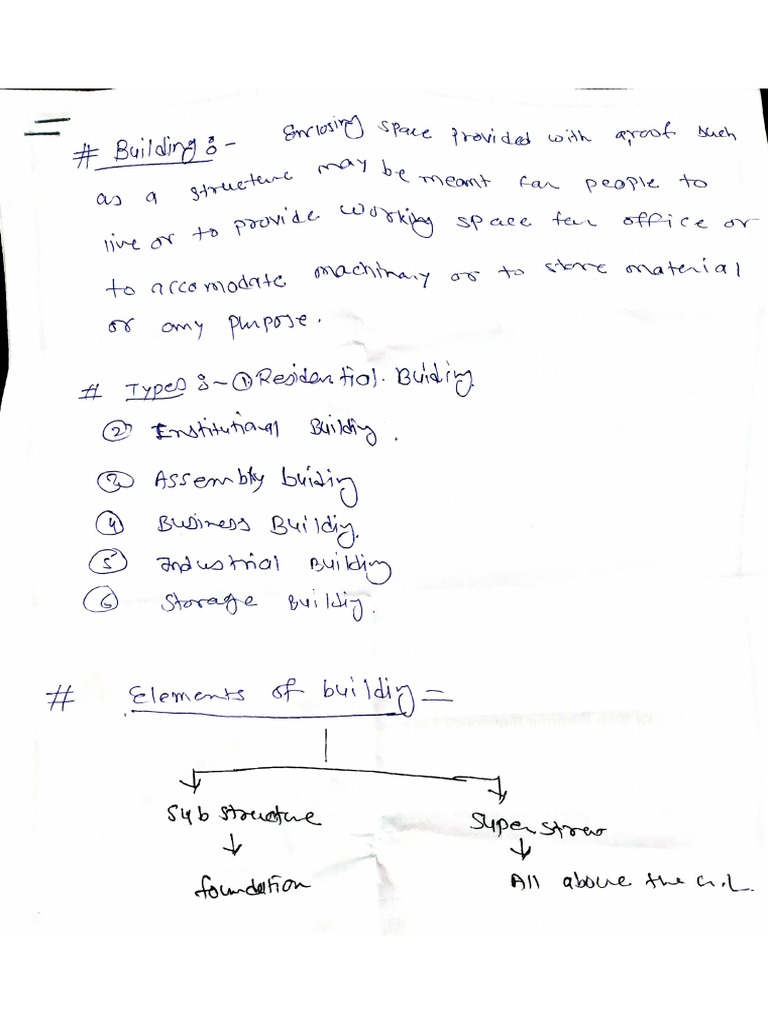 # Building :- Enclosing space provided with a roof such
as a structure may be meant for people to
live or to provide working space for office or
to accomodate machinary or to store material
or any purpose.
# Types :- ① Residential. Buiding.
② Institutional Building.
③ Assembly buiding
④ Business Buildig.
⑤ Industrial Building
⑥ Storage Buildig.
# Elements of buildig =
Sub structure Super struc
foundation All above the G.L.